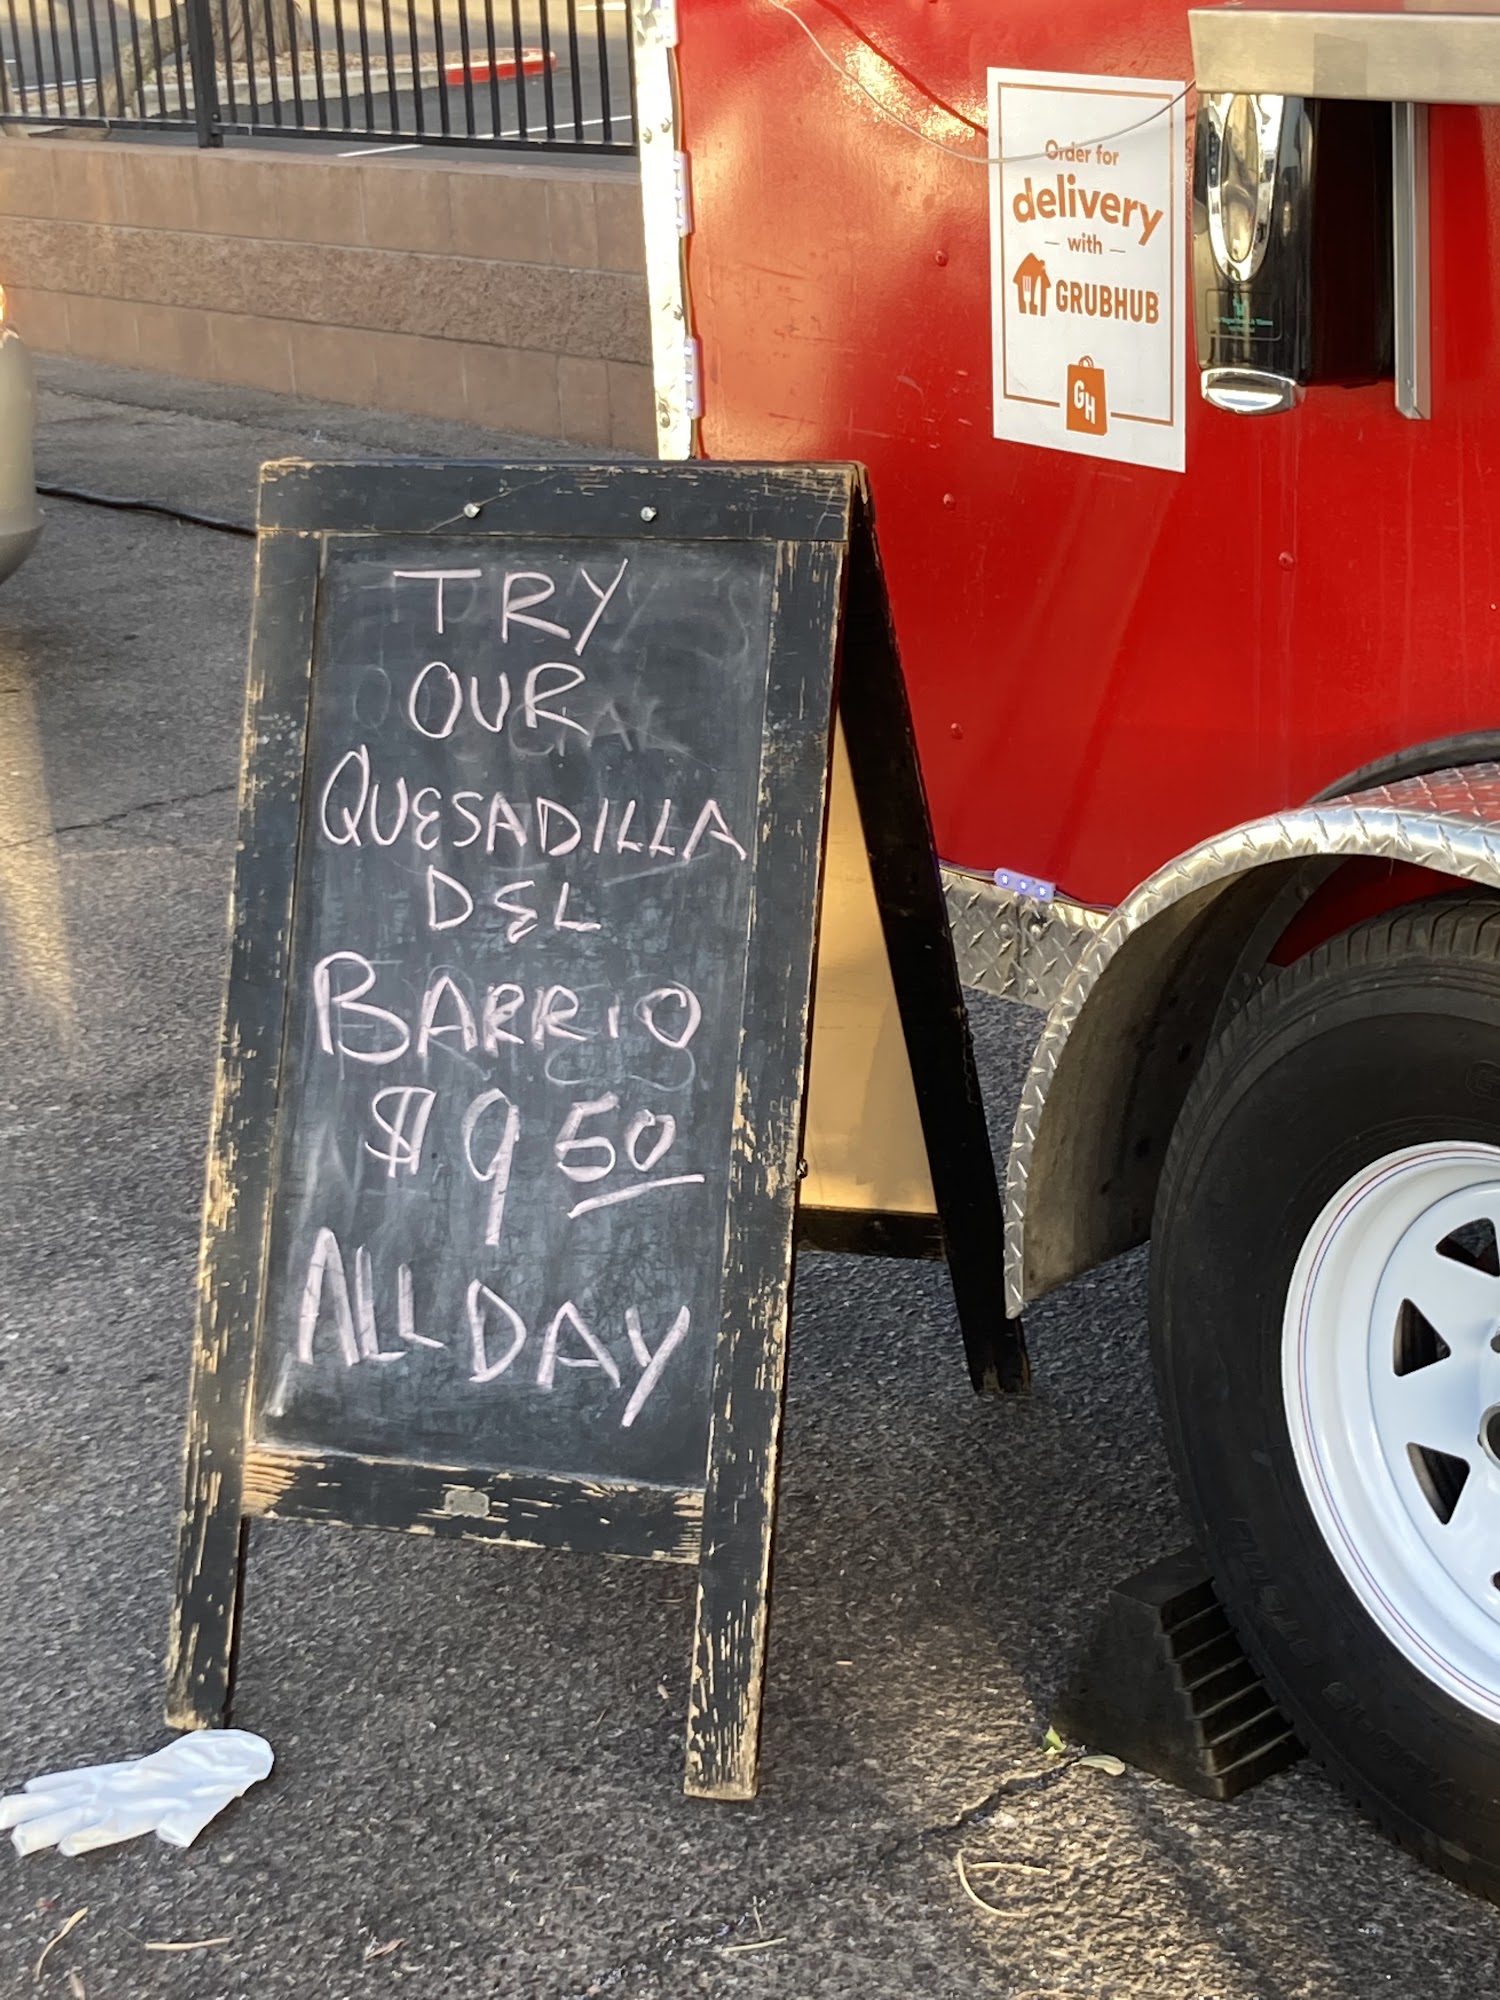 Order for
delivery
— with —
GRUBHUB
GH
TRY
OUR
QUESADILLA
DEL
BARRIO
$9 50
ALL DAY